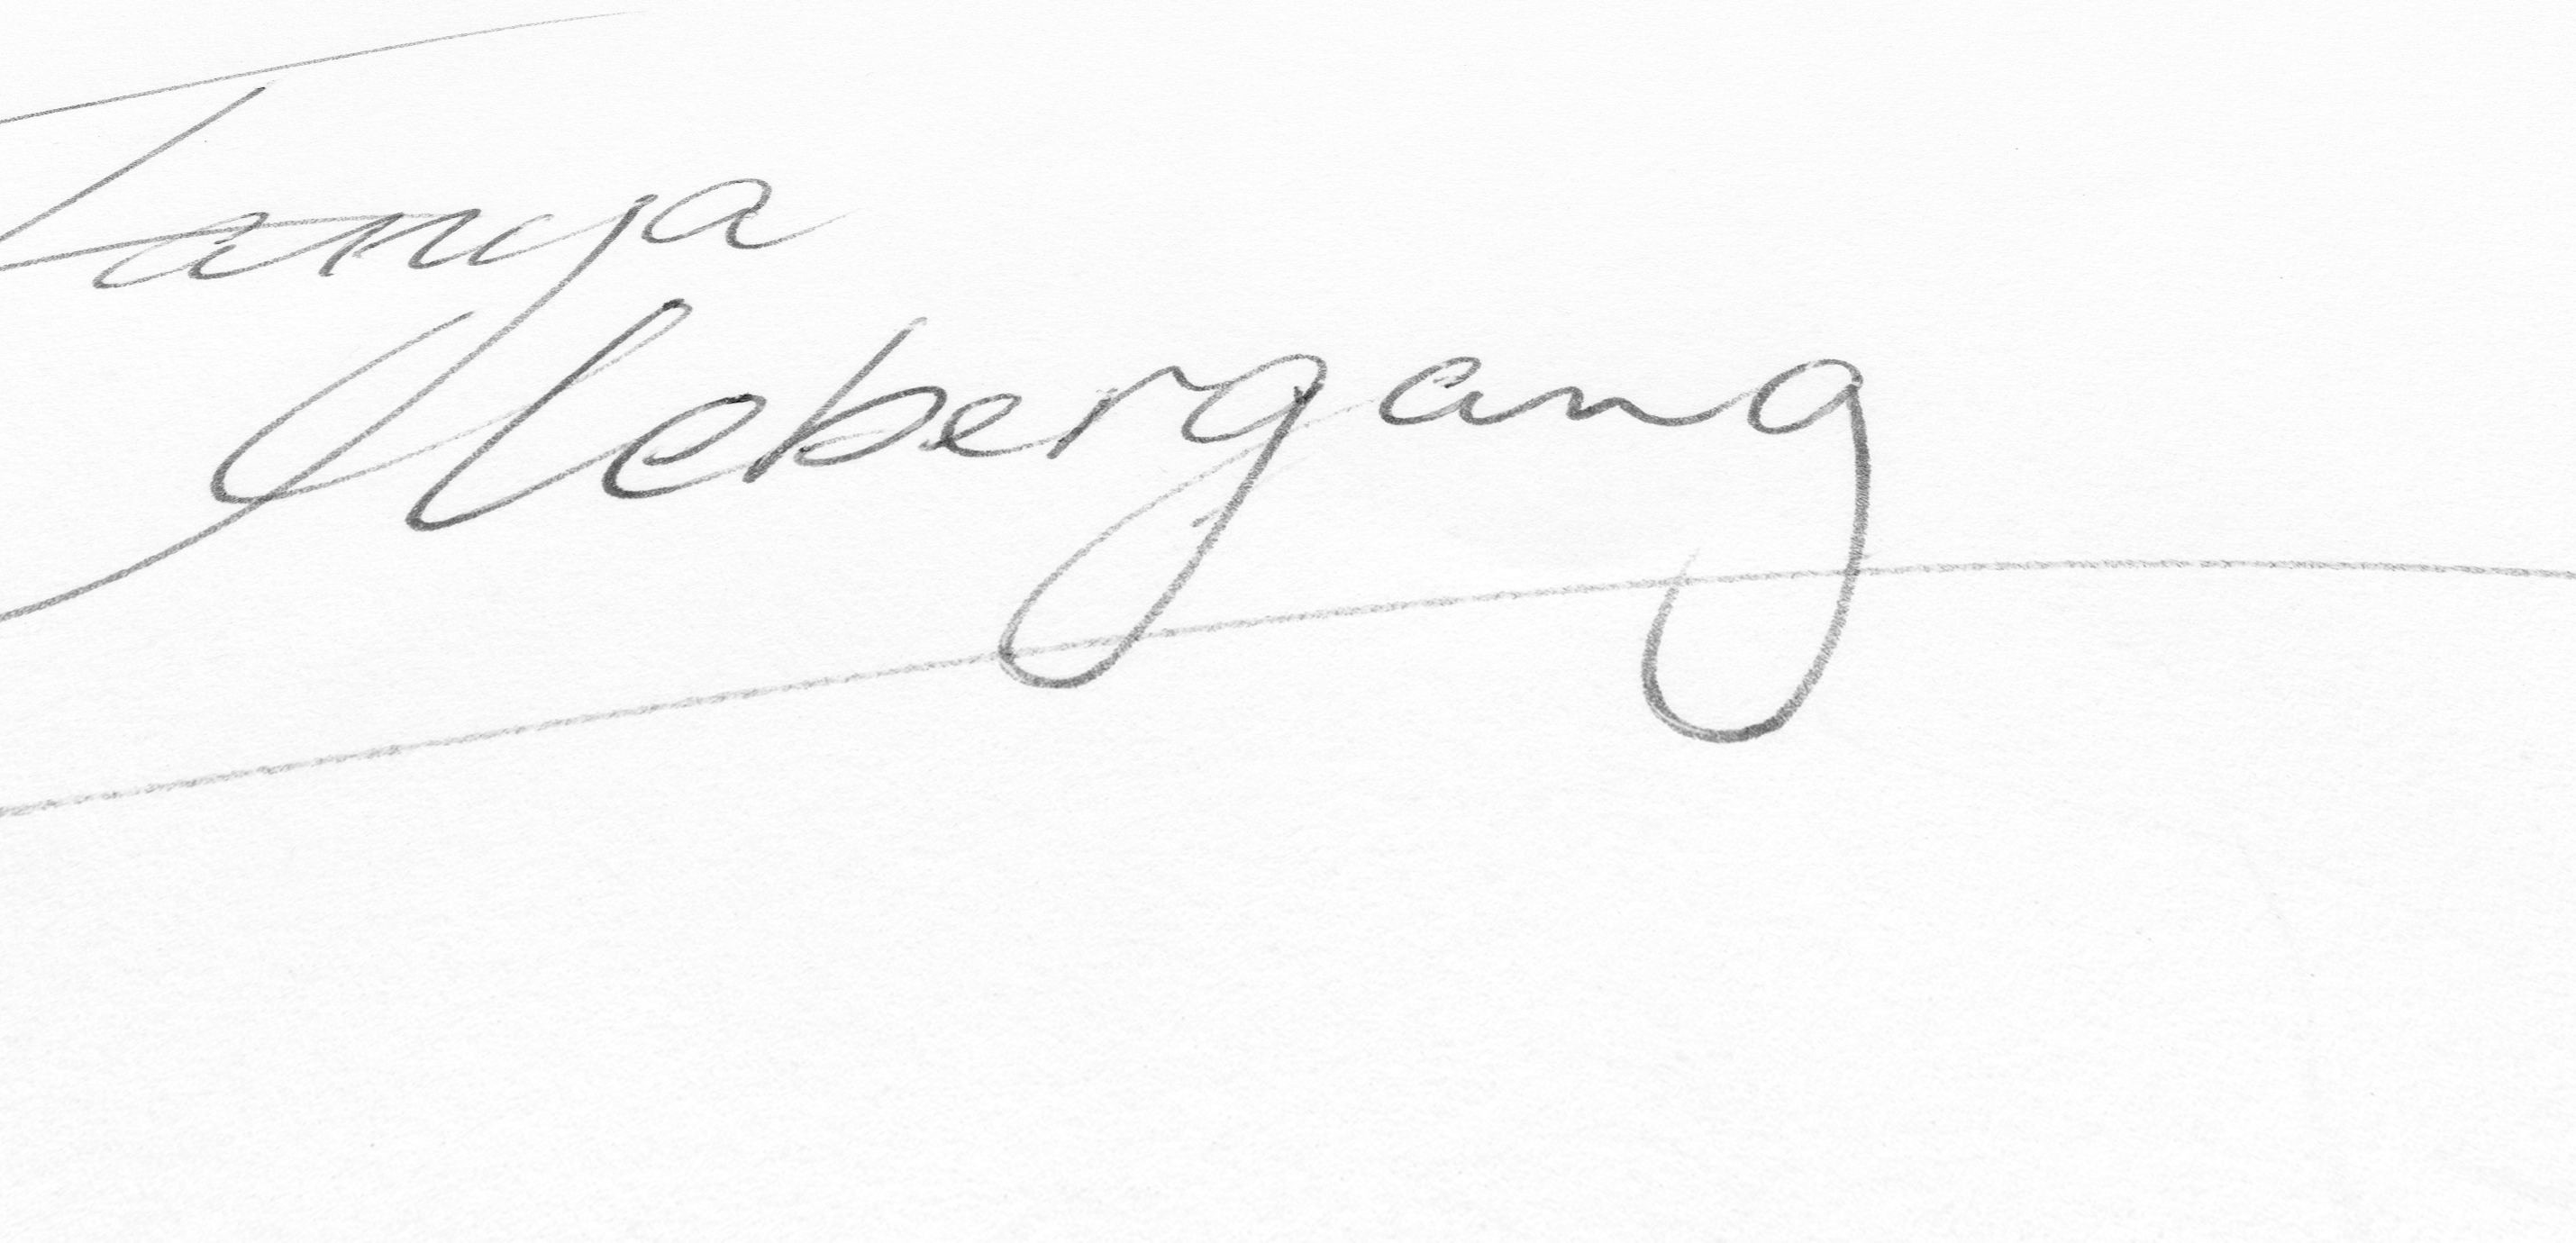 Tanya
Uebergang